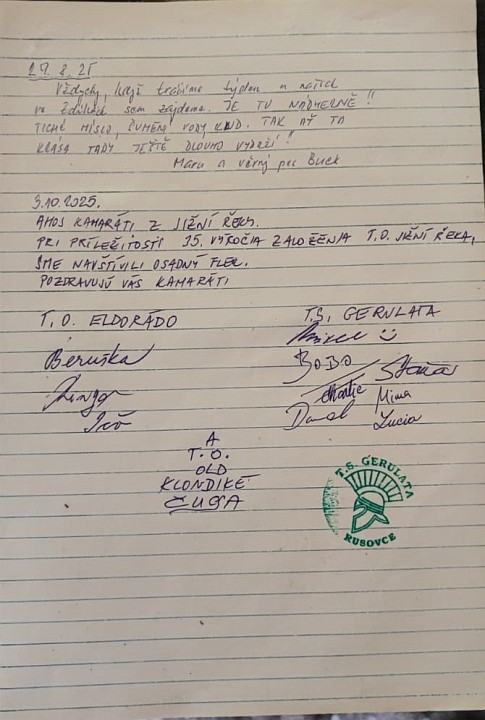 27. 8. 25
Vždycky, když trávíme týden u našich
ve Ždírkách sem zajdeme. JE TU NÁDHERNĚ!!
TICHÉ MÍSTO, ŠUMĚNÍ VODY, KLID. TAK AŤ TA
KRÁSA TADY JEŠTĚ DLOUHO VYDRŽÍ!!
Mára a věrný pes Buck
3.10.2025.
AHOJ KAMARÁTI Z JIŽNÍ ŘEKY.
PRI PRÍLEŽITOSTI 35. VÝROČIA ZALOŽENIA T.O. JIŽNÍ ŘEKA,
SME NAVŠTÍVILI OSADNÝ FLEK.
POZDRAVUJÚ VÁS KAMARÁTI
T.O. ELDORÁDO T.S. GERULATA
Beruška
BOBO
Ivo Mima
Lucia
A
T.O.
OLD
KLONDIKE
ČUGA
T.S. GERULATA
RUSOVCE